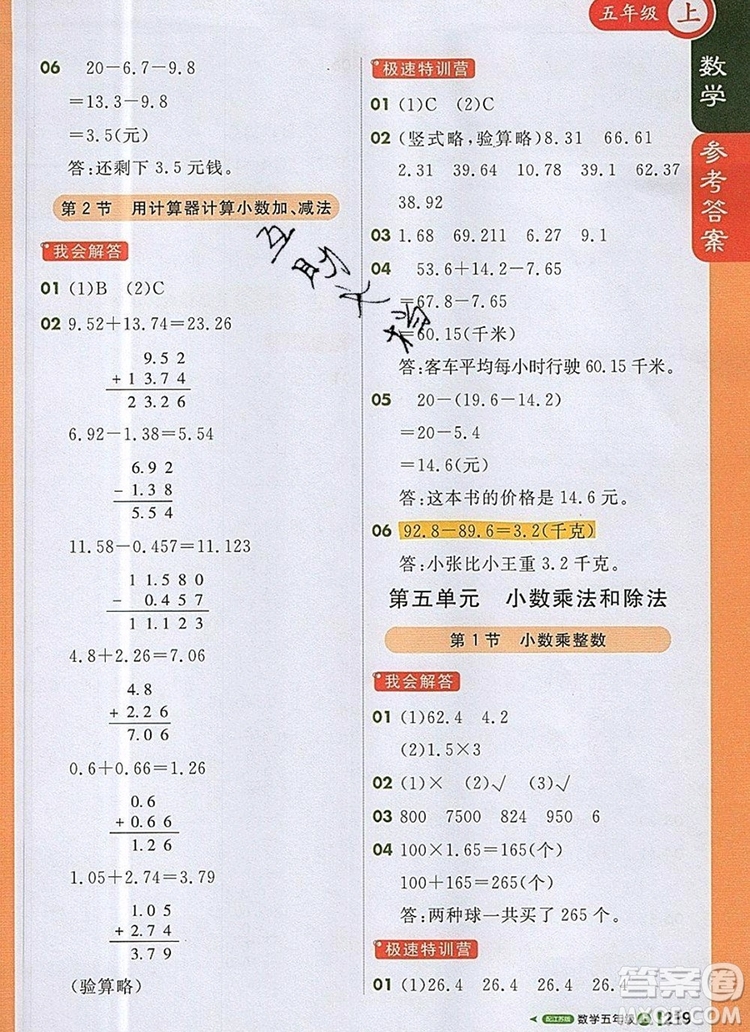 五年级 上
数学
参考答案
06 20-6.7-9.8
=13.3-9.8
=3.5(元)
答:还剩下 3.5 元钱。
第 2 节 用计算器计算小数加、减法
我会解答
01 (1)B (2)C
02 9.52+13.74=23.26
9.52
+13.74
23.26
6.92-1.38=5.54
6.92
-1.38
5.54
11.58-0.457=11.123
11.580
- 0.457
11.123
4.8+2.26=7.06
4.8
+2.26
7.06
0.6+0.66=1.26
0.6
+0.66
1.26
1.05+2.74=3.79
1.05
+2.74
3.79
(验算略)
极速特训营
01 (1)C (2)C
02 (竖式略,验算略)8.31 66.61
2.31 39.64 10.78 10.89 62.37
38.92
03 1.68 69.211 6.27 9.1
04 53.6+14.2-7.65
=67.8-7.65
=60.15(千米)
答:客车平均每小时行驶 60.15 千米。
05 20-(19.6-14.2)
=20-5.4
=14.6(元)
答:这本书的价格是 14.6 元。
06 92.8-89.6=3.2(千克)
答:小张比小王重 3.2 千克。
第五单元 小数乘法和除法
第 1 节 小数乘整数
我会解答
01 (1)62.4 4.2
(2)1.5×3
02 (1)× (2)√ (3)√
03 800 7500 824 950 6
04 100×1.65=165(个)
100+165=265(个)
答:两种球一共买了 265 个。
极速特训营
01 (1)26.4 26.4 26.4 26.4
配江苏版 数学五年级 上 219
答案圈